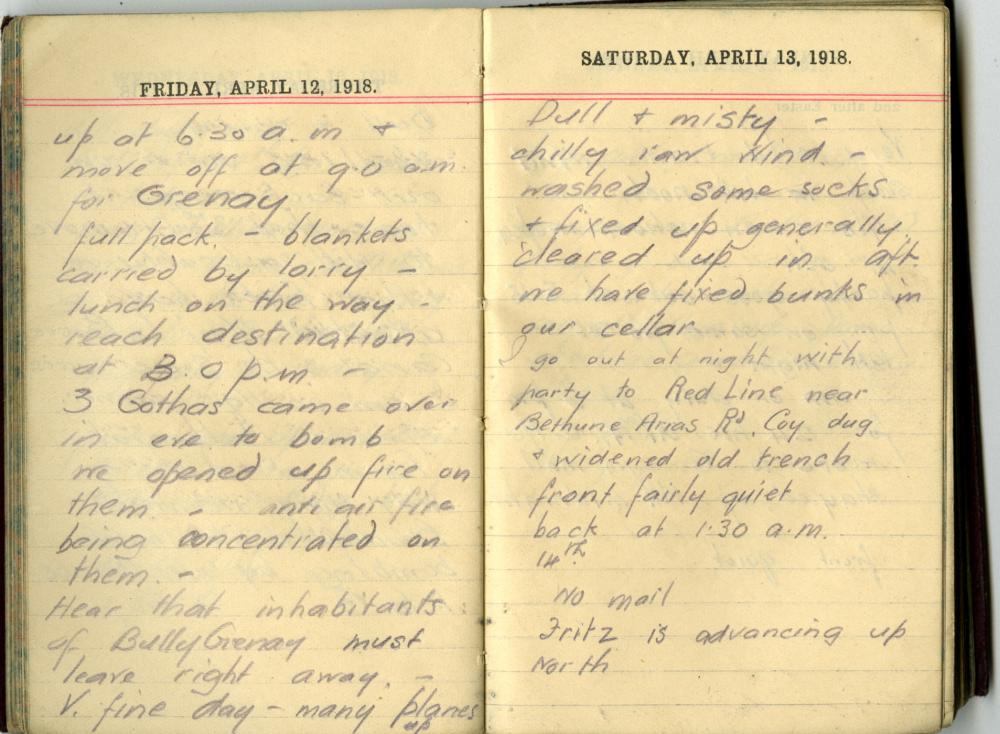 FRIDAY, APRIL 12, 1918.
up at 6.30 a.m &
move off at 9.0 a.m.
for Grenay
full pack. - blankets
carried by lorry -
lunch on the way -
reach destination
at 3 0 p.m -
3 Gothas came over
in eve to bomb
we opened up fire on
them - anti air fire
being concentrated on
them. -
Hear that inhabitants
of Bully Grenay must
leave right away. -
V. fine day - many planes
up
SATURDAY, APRIL 13, 1918.
Dull & misty -
chilly raw wind. -
washed some socks
& fixed up generally.
cleared up in aft.
we have fixed bunks in
our cellar
go out at night with
party to Red Line near
Bethune Arras Rd. Coy dug
& widened old trench
front fairly quiet
back at 1.30 a.m.
14th.
No mail
Fritz is advancing up
North